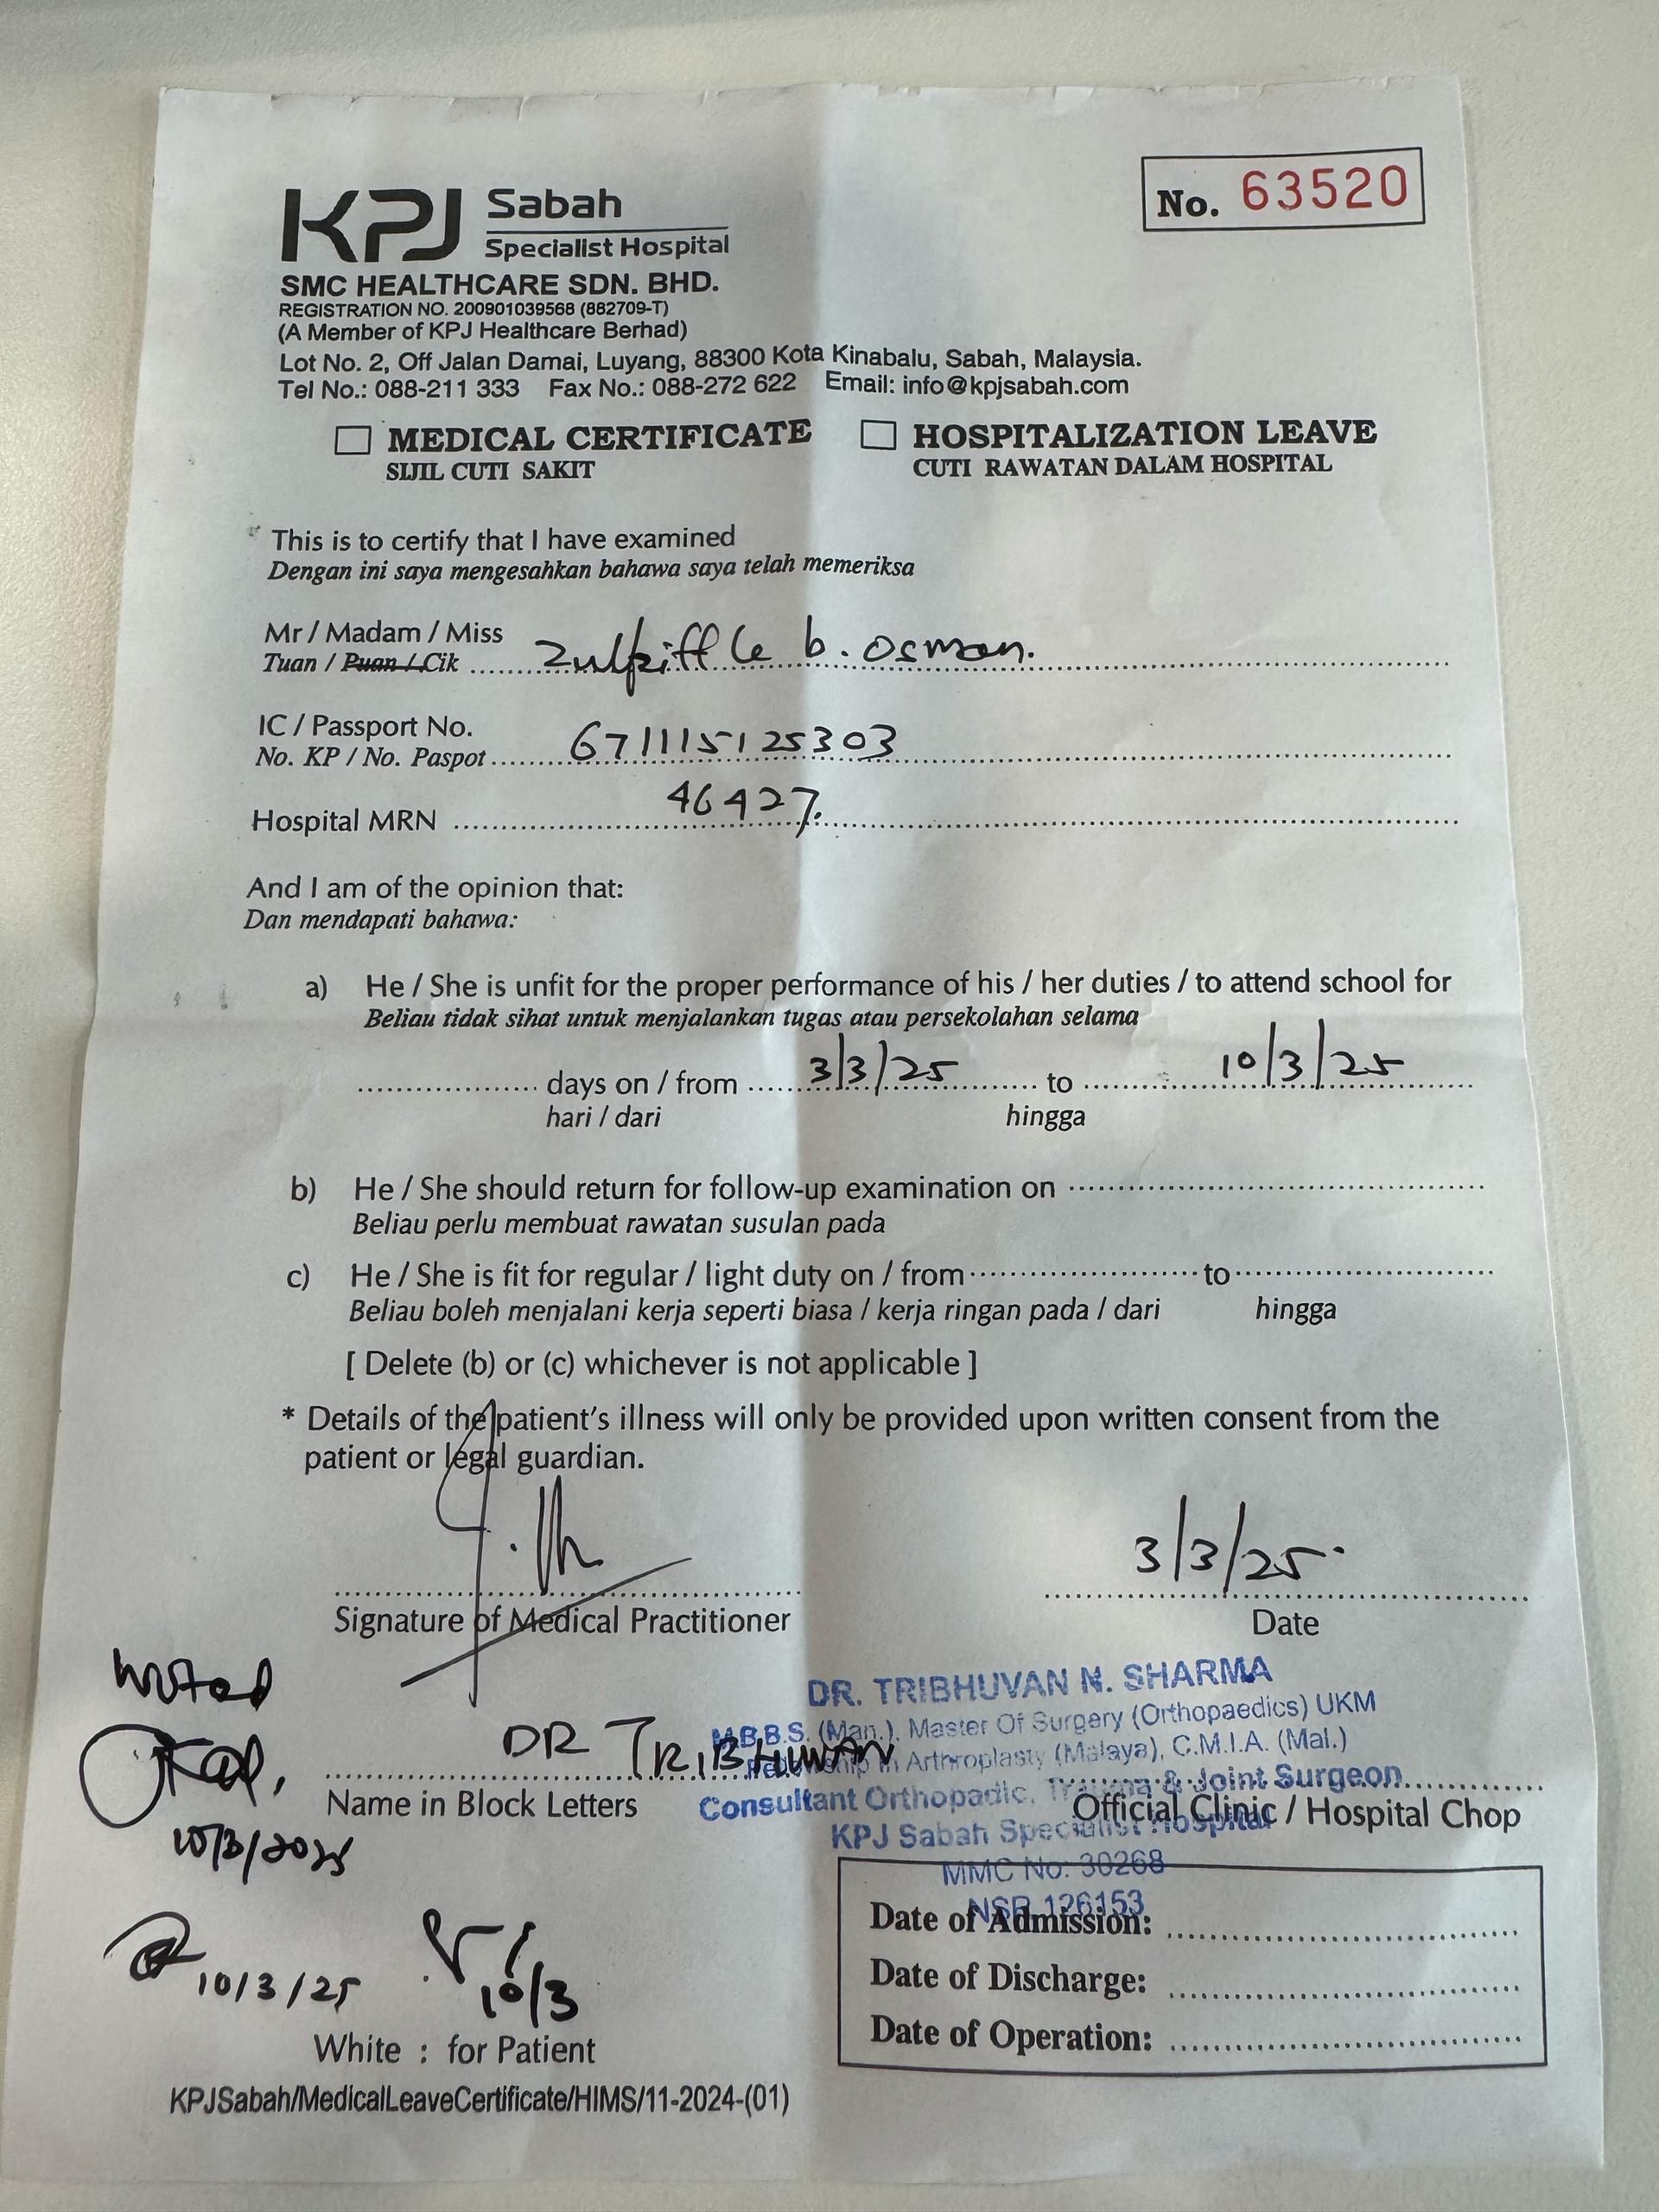 KPJ Sabah
Specialist Hospital
No. 63520
SMC HEALTHCARE SDN. BHD.
REGISTRATION NO. 200901039568 (882709-T)
(A Member of KPJ Healthcare Berhad)
Lot No. 2, Off Jalan Damai, Luyang, 88300 Kota Kinabalu, Sabah, Malaysia.
Tel No.: 088-211 333 Fax No.: 088-272 622 Email: info@kpjsabah.com
MEDICAL CERTIFICATE HOSPITALIZATION LEAVE
SIJIL CUTI SAKIT CUTI RAWATAN DALAM HOSPITAL
This is to certify that I have examined
Dengan ini saya mengesahkan bahawa saya telah memeriksa
Mr / Madam / Miss
Tuan / Puan / Cik Zulkiffle b. Osman.
IC / Passport No.
No. KP / No. Paspot 671115125303
Hospital MRN 46427.
And I am of the opinion that:
Dan mendapati bahawa:
a) He / She is unfit for the proper performance of his / her duties / to attend school for
Beliau tidak sihat untuk menjalankan tugas atau persekolahan selama
days on / from 3/3/25 to 10/3/25
hari / dari hingga
b) He / She should return for follow-up examination on
Beliau perlu membuat rawatan susulan pada
c) He / She is fit for regular / light duty on / from to
Beliau boleh menjalani kerja seperti biasa / kerja ringan pada / dari hingga
[ Delete (b) or (c) whichever is not applicable ]
* Details of the patient's illness will only be provided upon written consent from the
patient or legal guardian.
3/3/25
Signature of Medical Practitioner Date
DR. TRIBHUVAN N. SHARMA
M.B.B.S. (Man.), Master Of Surgery (Orthopaedics) UKM
Fellowship in Arthroplasty (Malaya), C.M.I.A. (Mal.)
Consultant Orthopadic, Trauma & Joint Surgeon
KPJ Sabah Specialist Hospital
MMC No: 30268
NSR 126153
DR TRIBHUVAN
Name in Block Letters Official Clinic / Hospital Chop
10/3/2025
10/3/25 10/3
Date of Admission:
Date of Discharge:
Date of Operation:
White : for Patient
KPJSabah/MedicalLeaveCertificate/HIMS/11-2024-(01)